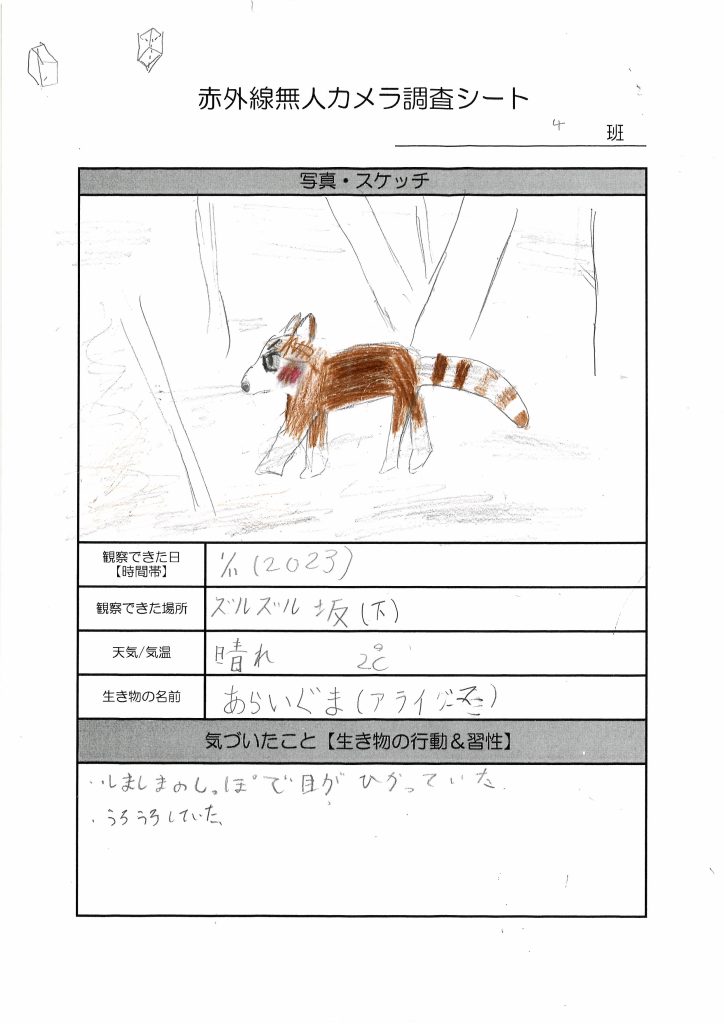 赤外線無人カメラ調査シート
4 班
写真・スケッチ
観察できた日
【時間帯】
1/11(2023)
観察できた場所
ズルズル坂(下)
天気/気温
晴れ 2℃
生き物の名前
あらいぐま(アライグマ)
気づいたこと【生き物の行動&習性】
・しましまのしっぽで目がひかっていた
・うろうろしていた、